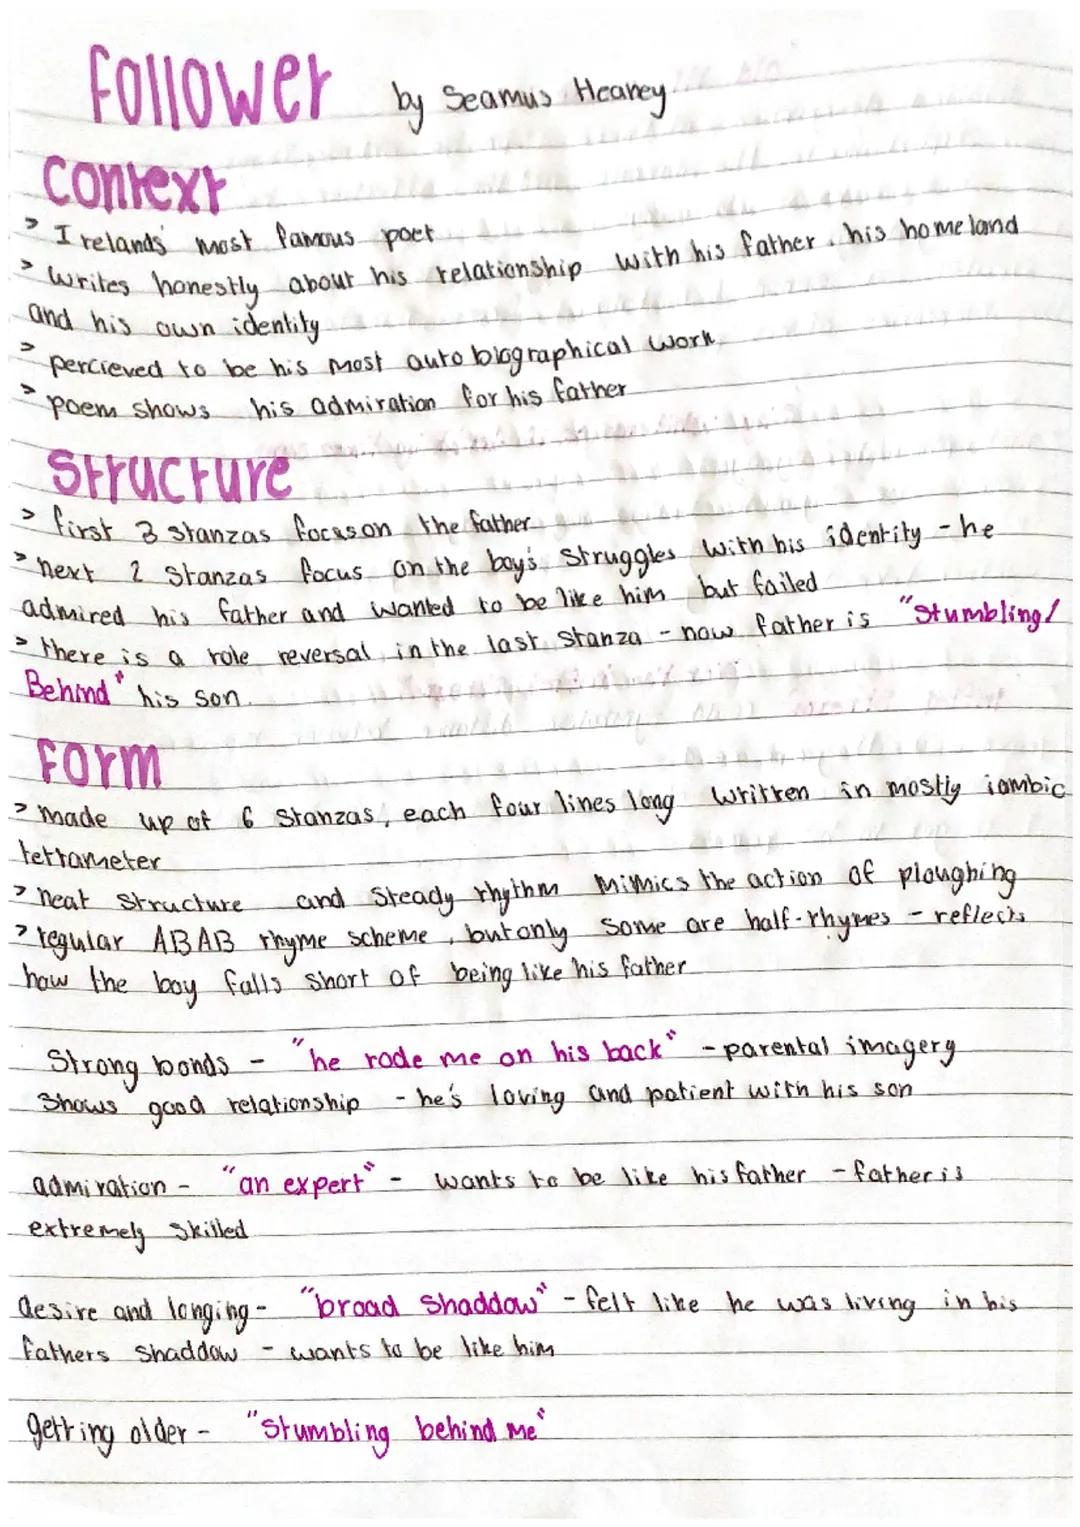 Follower by Seamus Heaney
Context
> Irelands' most famous poet
> writes honestly about his relationship with his father, his homeland
and his own identity
> percieved to be his most autobiographical work
> poem shows his admiration for his father
Structure
> first 3 stanzas focus on the father
> next 2 stanzas focus on the boy's struggles with his identity - he
admired his father and wanted to be like him but failed
> there is a role reversal in the last stanza - now father is "Stumbling/
Behind" his son.
Form
> made up of 6 stanzas, each four lines long written in mostly iambic
tetrameter
> neat structure and steady rhythm mimics the action of ploughing
> regular ABAB rhyme scheme, but only some are half-rhymes - reflects
how the boy falls short of being like his father
Strong bonds - "he rode me on his back" - parental imagery
shows good relationship - he's loving and patient with his son
admiration - "an expert" - wants to be like his father - father is
extremely skilled
desire and longing - "broad shaddow" - felt like he was living in his
fathers shaddow - wants to be like him
getting older - "Stumbling behind me"